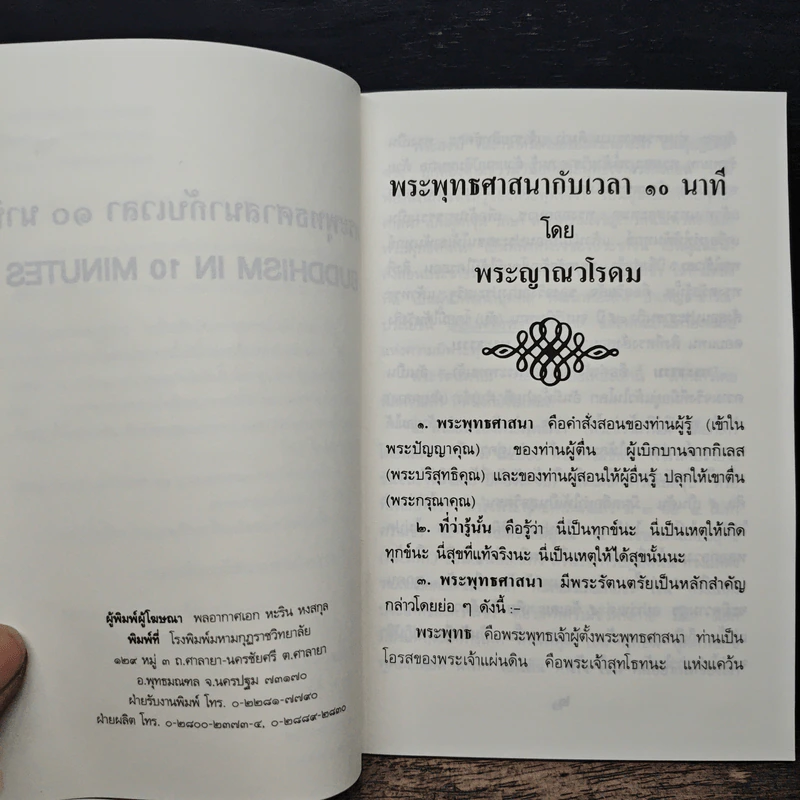 ผู้พิมพ์ผู้โฆษณา พลอากาศเอก หะริน หงสกุล
พิมพ์ที่ โรงพิมพ์มหามกุฏราชวิทยาลัย
๑๒๙ หมู่ ๓ ถ.ศาลายา-นครชัยศรี ต.ศาลายา
อ.พุทธมณฑล จ.นครปฐม ๗๓๑๗๐
ฝ่ายรับงานพิมพ์ โทร. ๐-๒๒๘๑-๗๗๙๐
ฝ่ายผลิต โทร. ๐-๒๘๐๐-๒๓๗๓-๔, ๐-๒๘๘๙-๒๘๓๐
พระพุทธศาสนากับเวลา ๑๐ นาที
โดย
พระญาณวโรดม
๑. พระพุทธศาสนา คือคำสั่งสอนของท่านผู้รู้ (เข้าใน
พระปัญญาคุณ) ของท่านผู้ตื่น ผู้เบิกบานจากกิเลส
(พระบริสุทธิคุณ) และของท่านผู้สอนให้ผู้อื่นรู้ ปลุกให้เขาตื่น
(พระกรุณาคุณ)
๒. ที่ว่ารู้นั้น คือรู้ว่า นี่เป็นทุกข์นะ นี่เป็นเหตุให้เกิด
ทุกข์นะ นี่สุขที่แท้จริงนะ นี่เป็นเหตุให้ได้สุขนั้นนะ
๓. พระพุทธศาสนา มีพระรัตนตรัยเป็นหลักสำคัญ
กล่าวโดยย่อ ๆ ดังนี้ :-
พระพุทธ คือพระพุทธเจ้าผู้ตั้งพระพุทธศาสนา ท่านเป็น
โอรสของพระเจ้าแผ่นดิน คือพระเจ้าสุทโธทนะ แห่งแคว้น